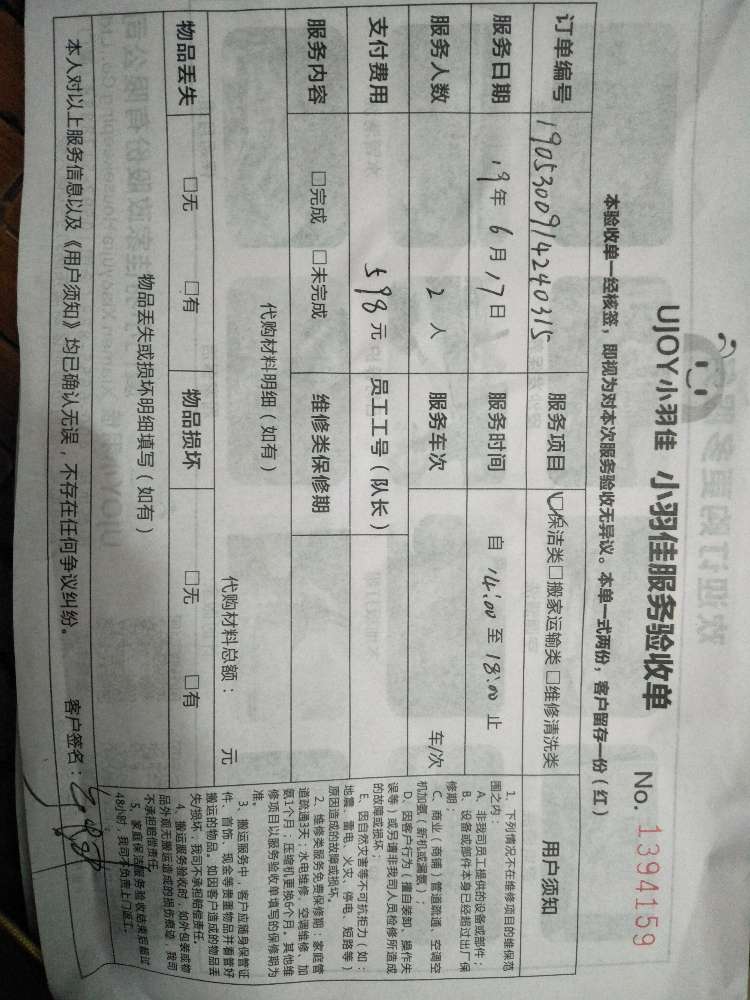 UJOY小羽佳 小羽佳服务验收单
No. 1394159
本验收单一经核签，即视为对本次服务验收无异议。本单一式两份，客户留存一份（红）
订单编号 19053009142403315 服务项目 ☑保洁类□搬家运输类□维修清洗类
服务日期 19年6月17日 服务时间 自 14:00 至 18:00 止
服务人数 2人 服务车次 车/次
支付费用 598元 员工工号（队长）
服务内容 □完成 □未完成 维修类保修期
代购材料明细（如有）
代购材料总额： 元
物品丢失 □无 □有 物品损坏 □无 □有
物品丢失或损坏明细填写（如有）
本人对以上服务信息以及《用户须知》均已确认无误，不存在任何争议纠纷。
客户签名：
用户须知
1、下列情况不在维修项目的维保范
围之内：
A、非我司员工提供的设备或部件；
B、设备或部件本身已经超过出厂保
修期；
C、商业（商铺）管道疏通、空调空
机加氨（新机或漏氨）；
D、因客户行为，擅自装卸、操作失
误等，或另请非我司人员维修所造成
的故障或损坏；
E、因自然灾害等不可抗拒力（如：
地震、雷电、火灾、停电、短路等）
原因造成的故障或损坏。
2、维修类服务免费保修期：家庭管
道疏通3天；水电维修、空调维修、加
氨1个月；压缩机更换6个月。其他维
修项目以服务验收单填写的保修期为
准。
3、搬运服务中，客户应随身保管证
件、首饰、现金等贵重物品并看管好
搬运的物品。如因客户造成的物品丢
失/损坏，我司不承担赔偿责任。
4、搬运服务验收时，如外包装或物
品外观无搬运造成的损伤痕迹，我司
不承担赔偿责任。
5、家庭保洁服务验收结束后超过
48小时，我司不负责上门返工。